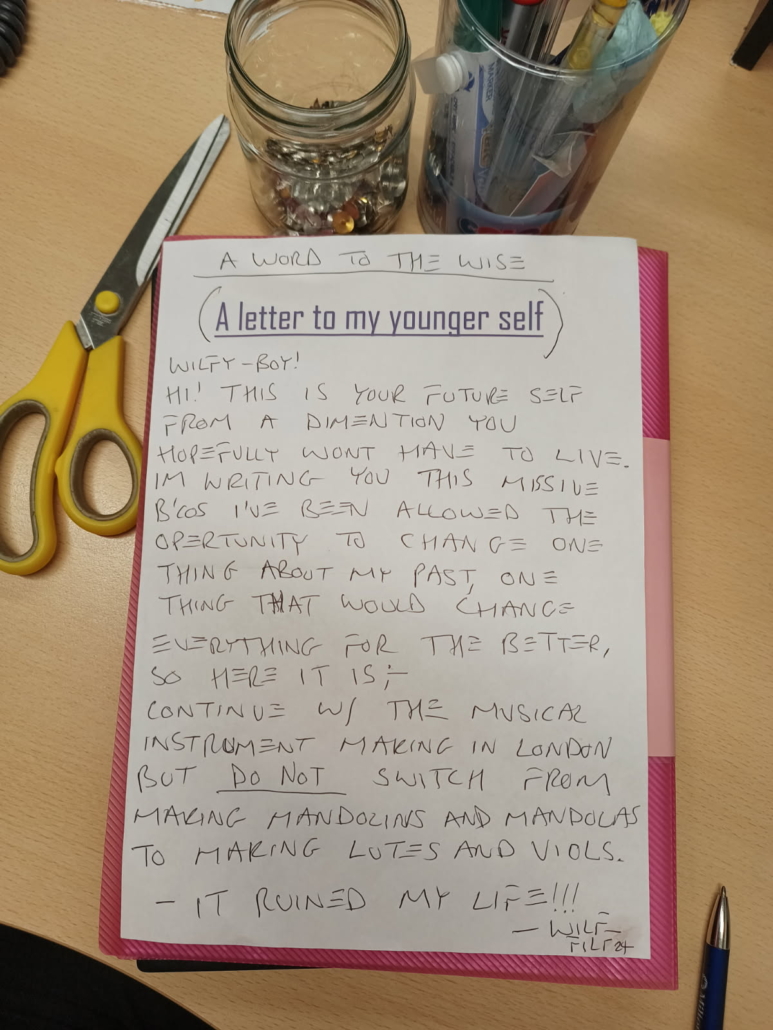 A WORD TO THE WISE
(A letter to my younger self)
WILFY-BOY!
HI! THIS IS YOUR FUTURE SELF
FROM A DIMENTION YOU
HOPEFULLY WONT HAVE TO LIVE.
IM WRITING YOU THIS MISSIVE
B'COS I'VE BEEN ALLOWED THE
OPERTUNITY TO CHANGE ONE
THING ABOUT MY PAST, ONE
THING THAT WOULD CHANGE
EVERYTHING FOR THE BETTER,
SO HERE IT IS;-
CONTINUE W/ THE MUSICAL
INSTRUMENT MAKING IN LONDON
BUT DO NOT SWITCH FROM
MAKING MANDOLINS AND MANDOLAS
TO MAKING LUTES AND VIOLS.
- IT RUINED MY LIFE!!!
- WILF
FILF 24